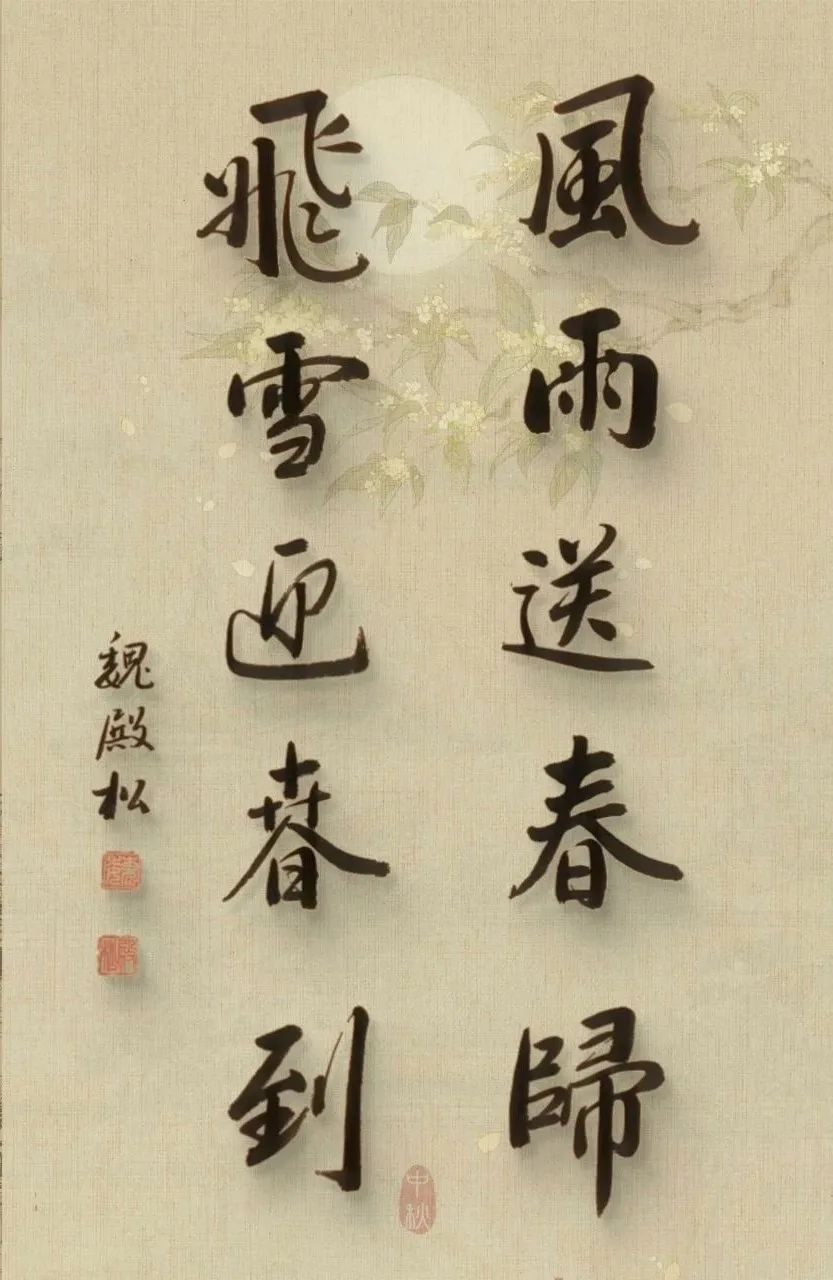 風雨送春歸
飛雪迎春到
魏殿松
中秋